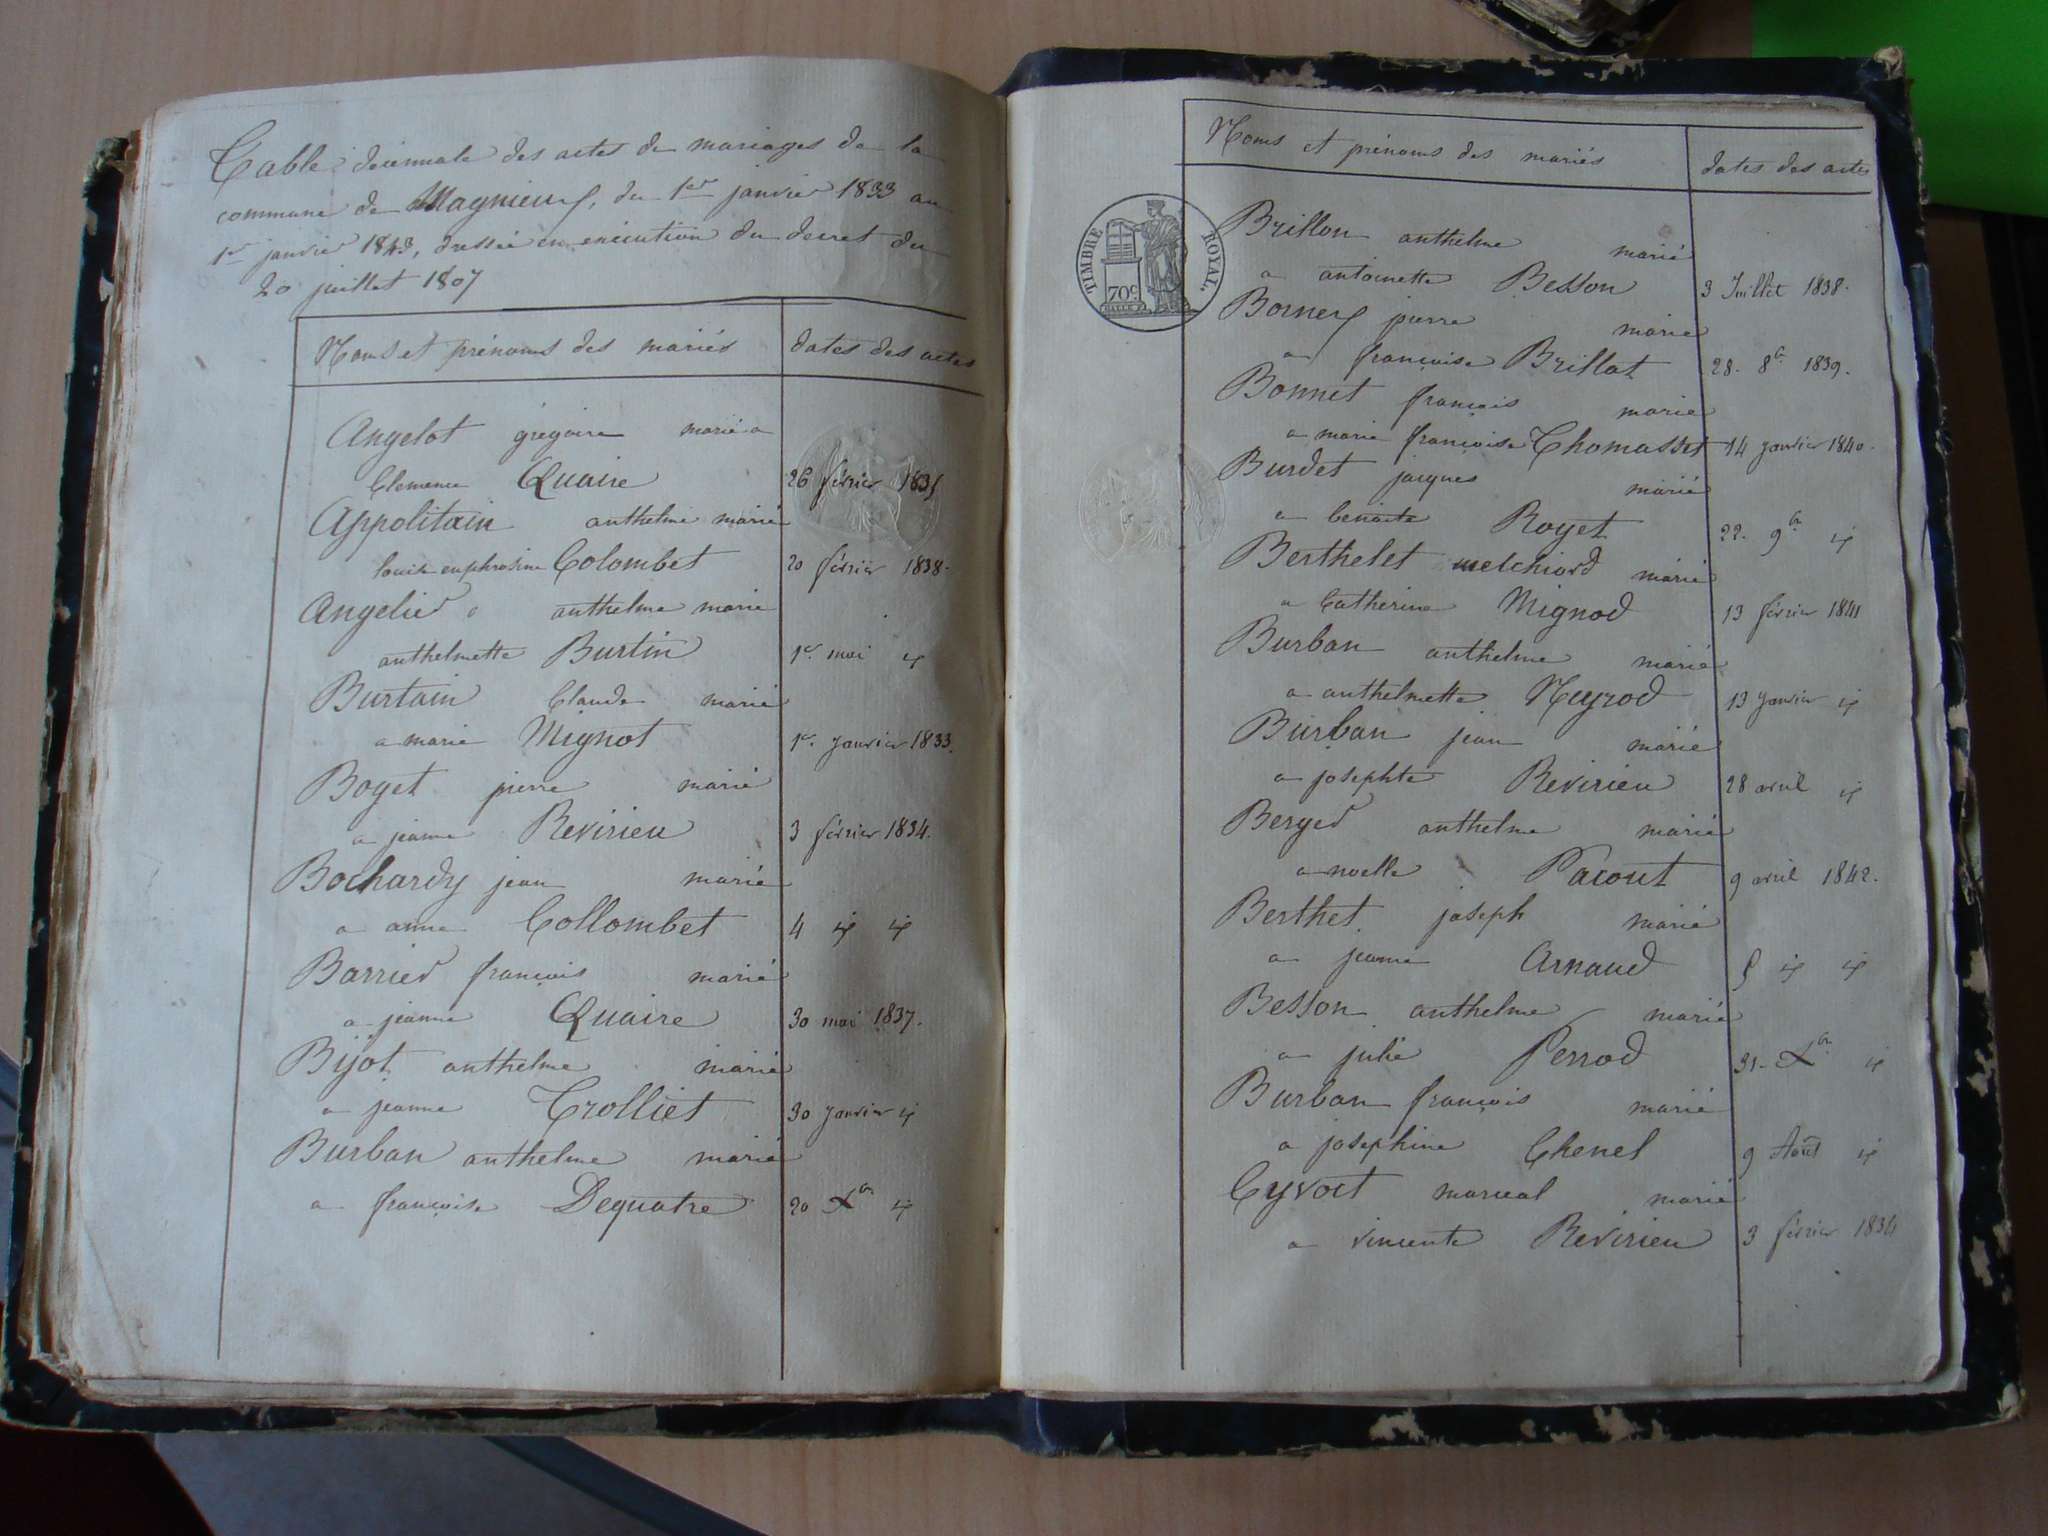 Table décennale des actes de mariages de la
commune de Magnieu, du 1er janvier 1833 au
1er janvier 1843, dressée en exécution du decret du
20 juillet 1807
Noms et prénoms des mariés dates des actes
Angelot grégoire marié a
Clemence Quaire 26 février 1835
Appolitain anthelme marié
louise euphrosine Colombet 20 février 1838.
Angelier anthelme marié
anthelmette Burtin 1er mai id
Burtain Claude marié
a marie Mignot 1er Janvier 1833.
Boget pierre marié
a jeanne Revirieu 3 février 1834.
Bochardy jean marié
a anne Collombet 4 id id
Barrier françois marié
a jeanne Quaire 30 mai 1837.
Bijot anthelme marié
a jeanne Trolliet 30 Janvier id
Burban anthelme marié
a françoise Dequatre 20 Xbre id
Noms et prénoms des mariés dates des actes
TIMBRE ROYAL.
70c
Brillon anthelme marié
a antoinette Besson 3 Juillet 1838.
Borney pierre marié
a françoise Brillat 28. 8bre 1839.
Bonnet françois marié
a marie françoise Thomasset 14 Janvier 1840.
Burdet jacques marié
a benoite Royet 22. 9bre id
Berthelet melchiord marié
a Catherine Mignod 13 février 1841
Burban anthelme marié
a anthelmette Neyrod 13 Janvier id
Burban jean marié
a josephte Revirieu 28 avril id
Berger anthelme marié
a noelle Pacout 9 avril 1842.
Berthet joseph marié
a jeanne Arnaud 5 id id
Besson anthelme marié
a julie Perrod 31. Xbre id
Burban françois marié
a josephine Chenel 9 Août id
Cyvoct marceal marié
a vincente Revirieu 3 février 1834